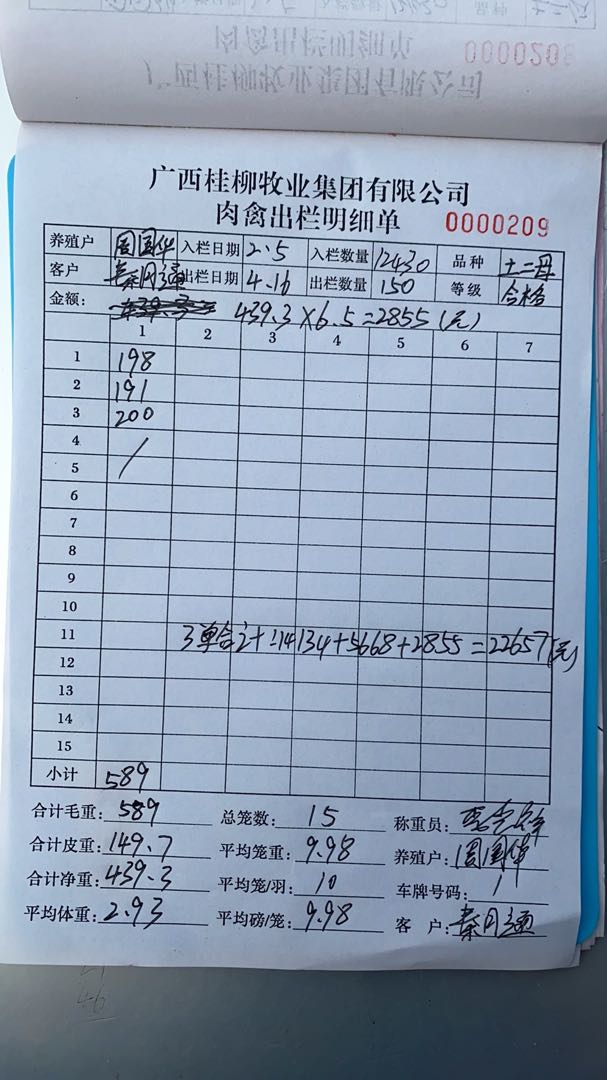 广西桂柳牧业集团有限公司
肉禽出栏明细单 0000209
养殖户 周国华 入栏日期 2.5 入栏数量 12430 品种 土二母
客户 秦月通 出栏日期 4.16 出栏数量 150 等级 合格
金额: 439.3×6.5=2855(元)
1 2 3 4 5 6 7
1 198
2 191
3 200
4 /
5
6
7
8
9
10
11 3单合计:14134+5668+2855=22657(元)
12
13
14
15
小计 589
合计毛重: 589 总笼数: 15 称重员:
合计皮重: 149.7 平均笼重: 9.98 养殖户: 周国华
合计净重: 439.3 平均笼/羽: 10 车牌号码: /
平均体重: 2.93 平均磅/笼: 9.98 客 户: 秦月通